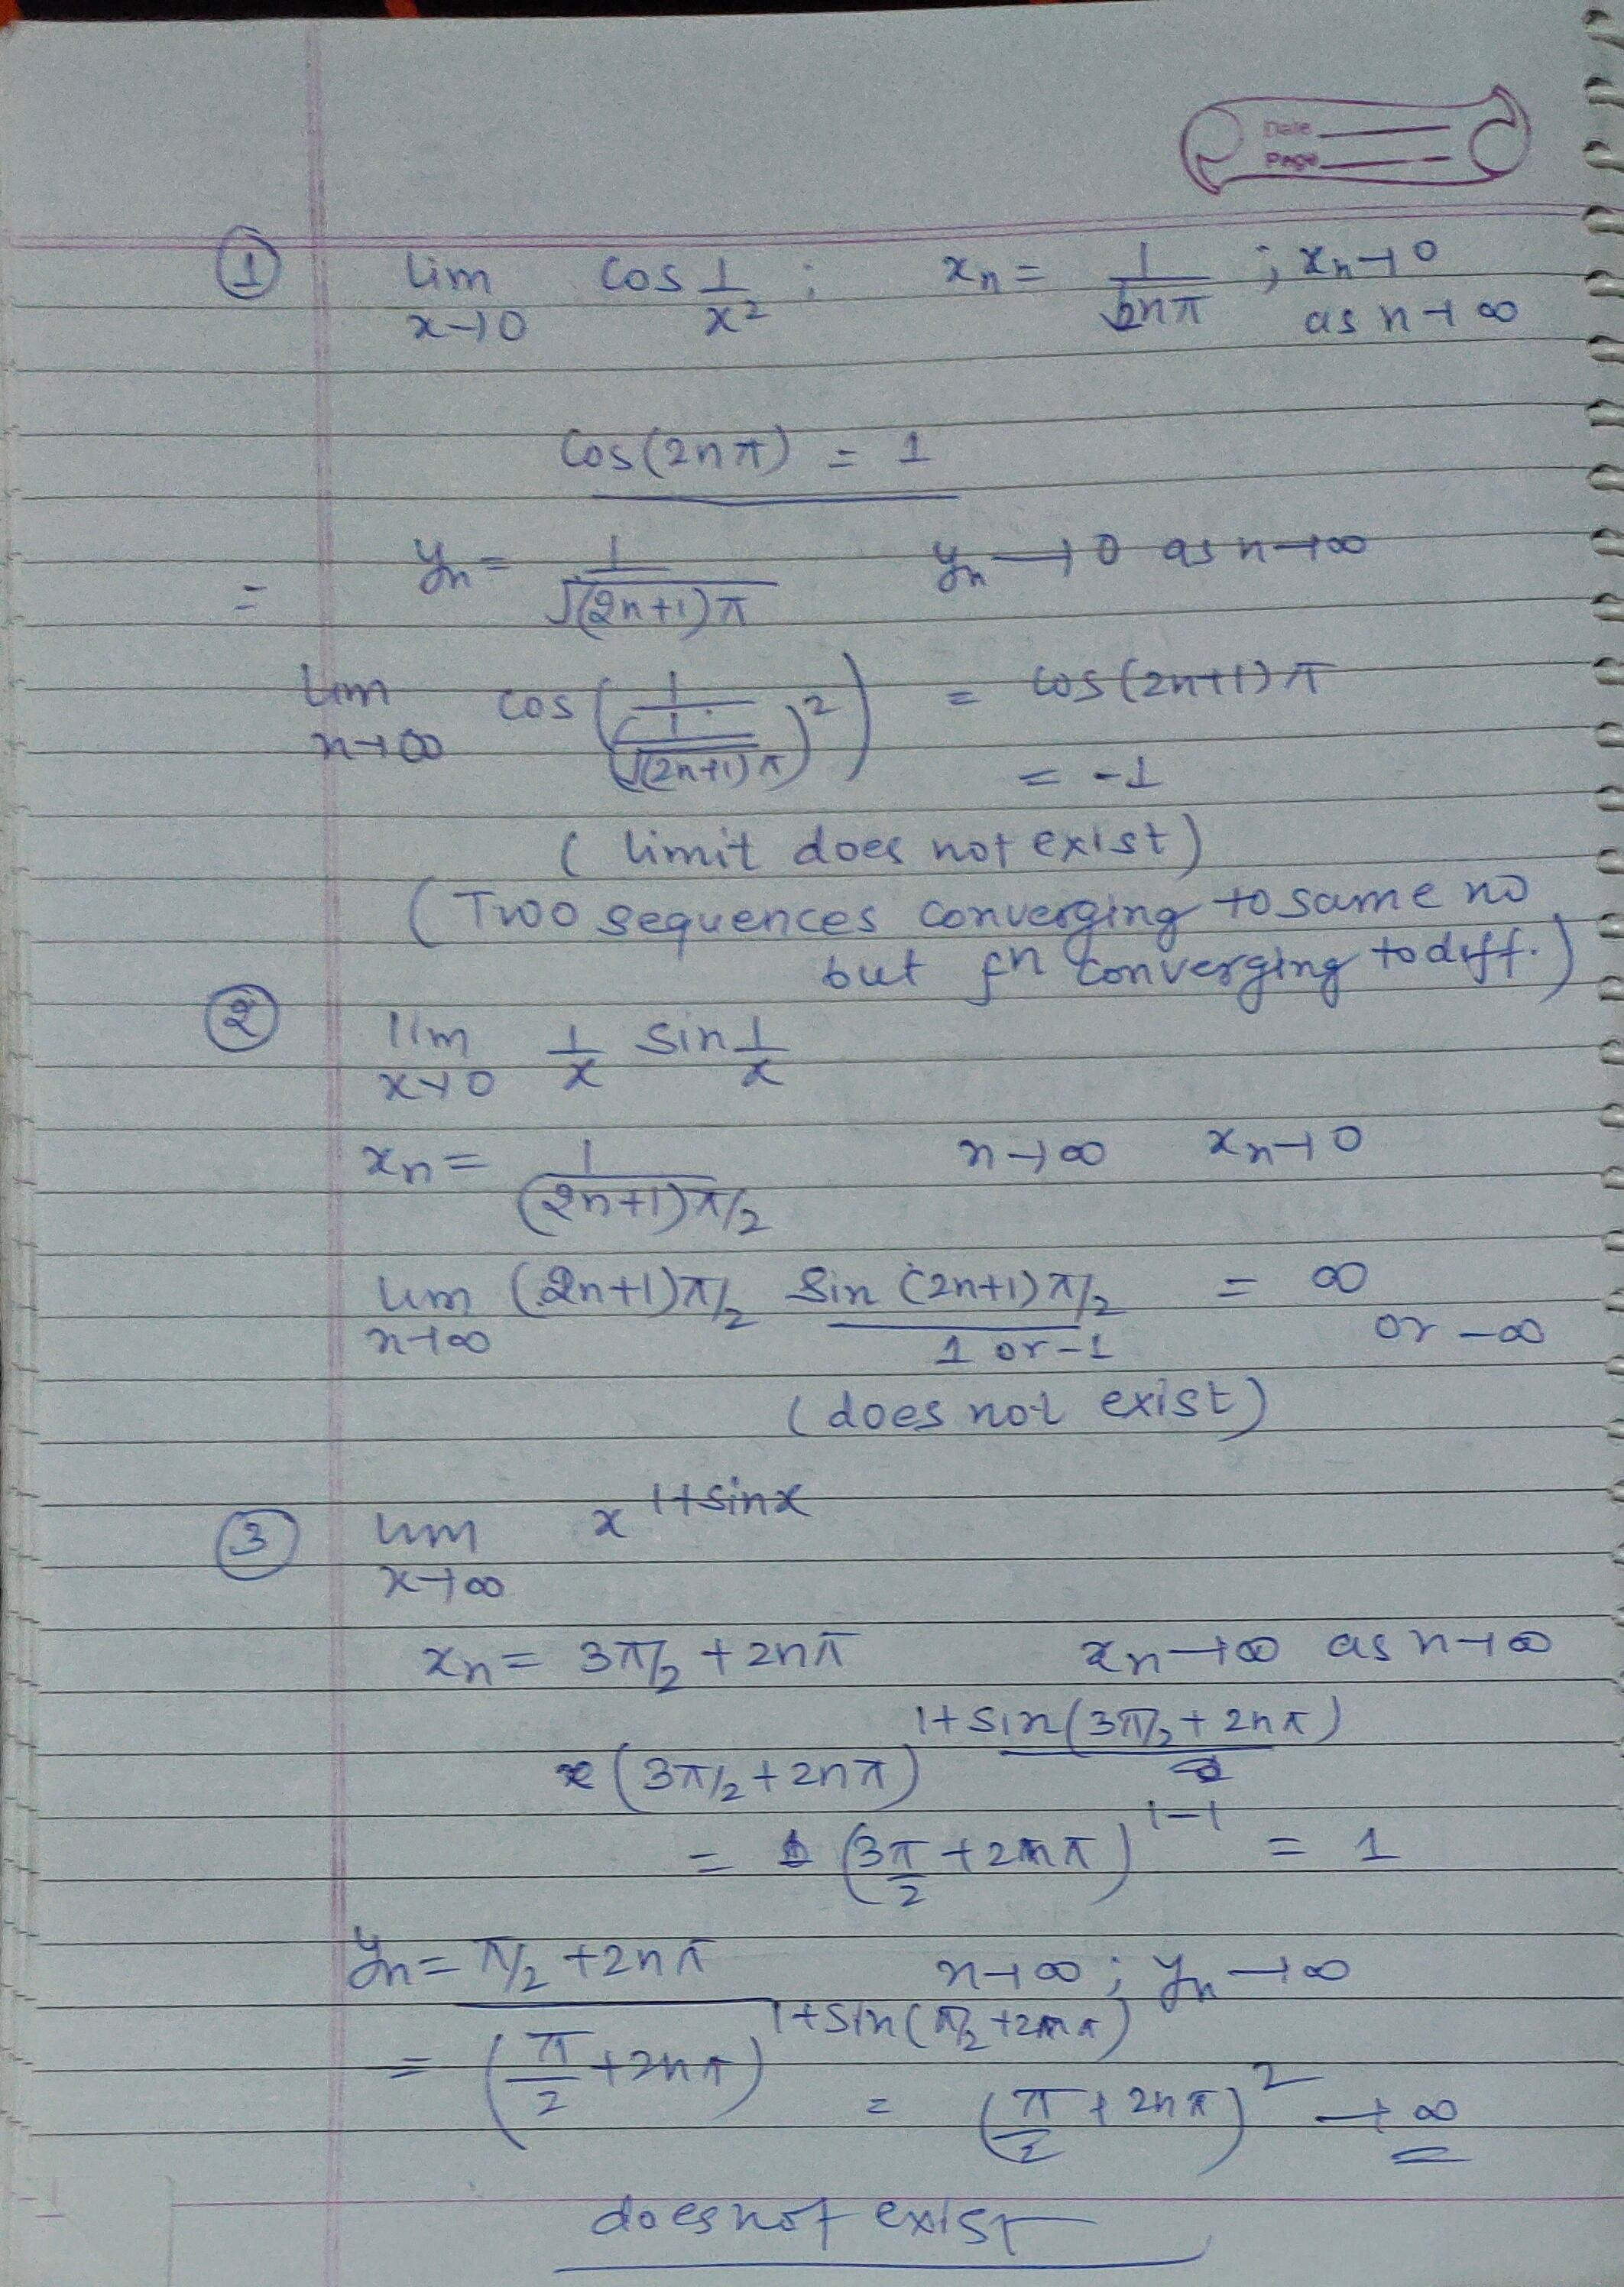 Date
Page
① lim x→0 cos 1/x² ; xn = 1/√2nπ ; xn→0 as n→∞
cos(2nπ) = 1
= yn = 1/√(2n+1)π yn→0 as n→∞
lim n→∞ cos(1/(1/√(2n+1)π)²) = cos(2n+1)π
= -1
( limit does not exist )
( Two sequences converging to same no
but fn converging to diff. )
② lim x→0 1/x sin 1/x
xn = 1/(2n+1)π/2 n→∞ xn→0
lim n→∞ (2n+1)π/2 sin (2n+1)π/2 = ∞
1 or -1 or -∞
(does not exist)
③ lim x→∞ x^1+sinx
xn = 3π/2 + 2nπ xn→∞ as n→∞
(3π/2 + 2nπ)^1+sin(3π/2 + 2nπ)
= (3π/2 + 2nπ)^1-1 = 1
yn = π/2 + 2nπ n→∞ ; yn→∞
= (π/2 + 2nπ)^1+sin(π/2 + 2nπ) = (π/2 + 2nπ)^2 → ∞
does not exist